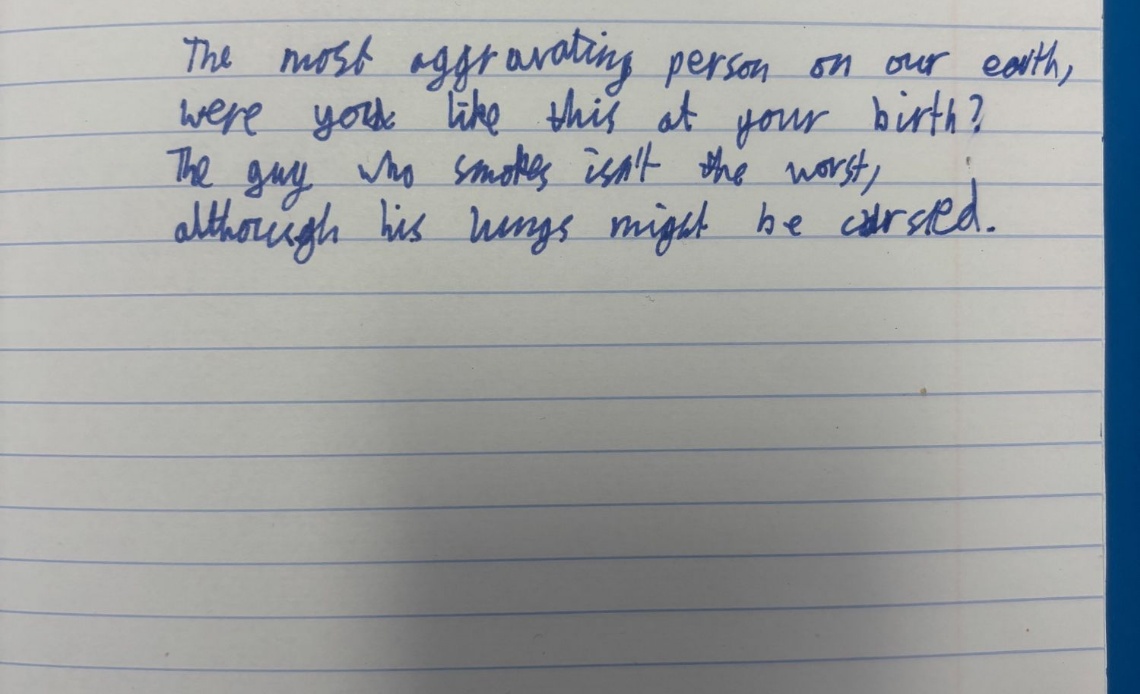 The most aggravating person on our earth,
were you like this at your birth?
The guy who smokes isn't the worst,
although his lungs might be cursed.